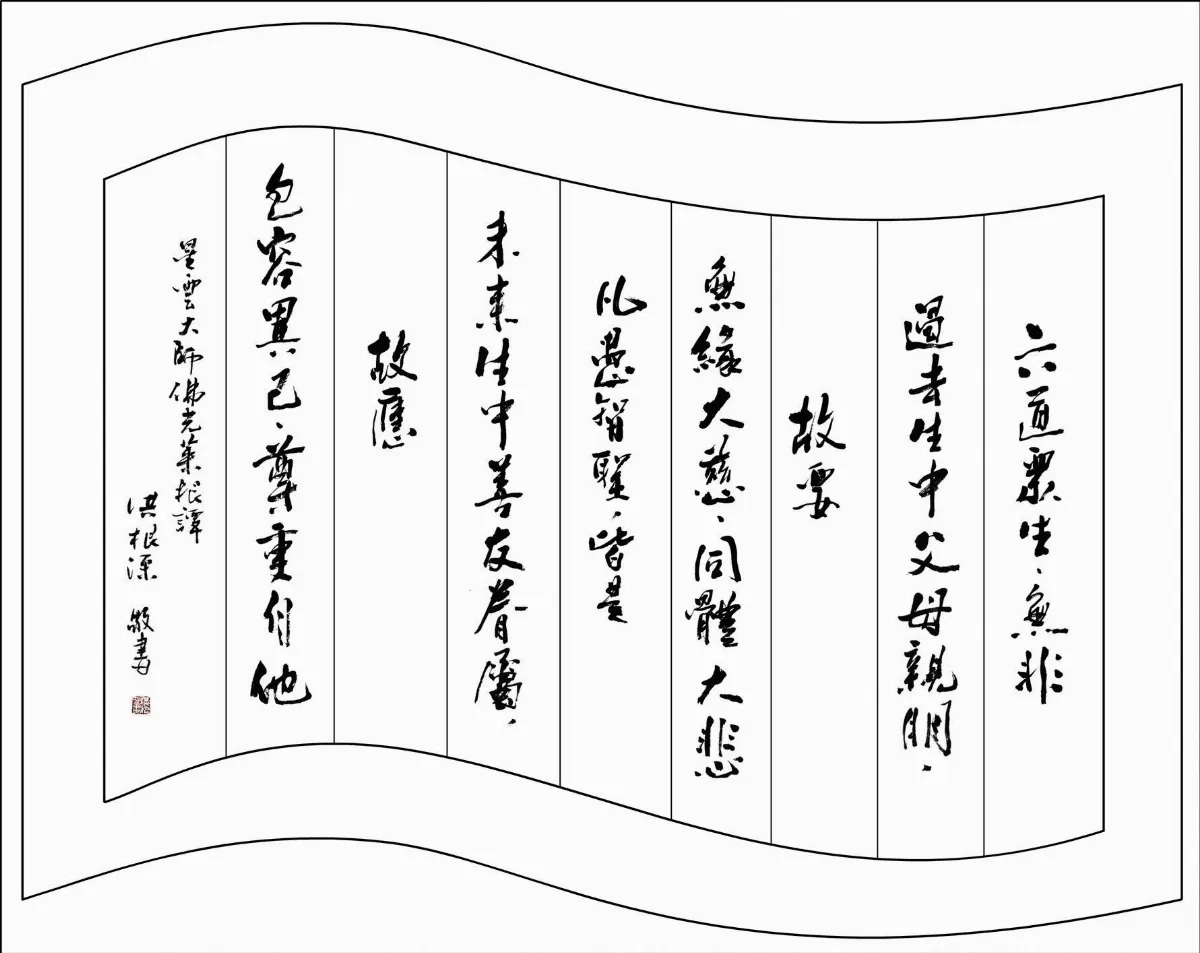 六道眾生、無非
過去生中父母親朋、
故要
無緣大慈、同體大悲
凡愚智聖、皆是
未來生中善友眷屬、
故應
包容異己、尊重自他
星雲大師佛光菜根譚
洪根深 敬書